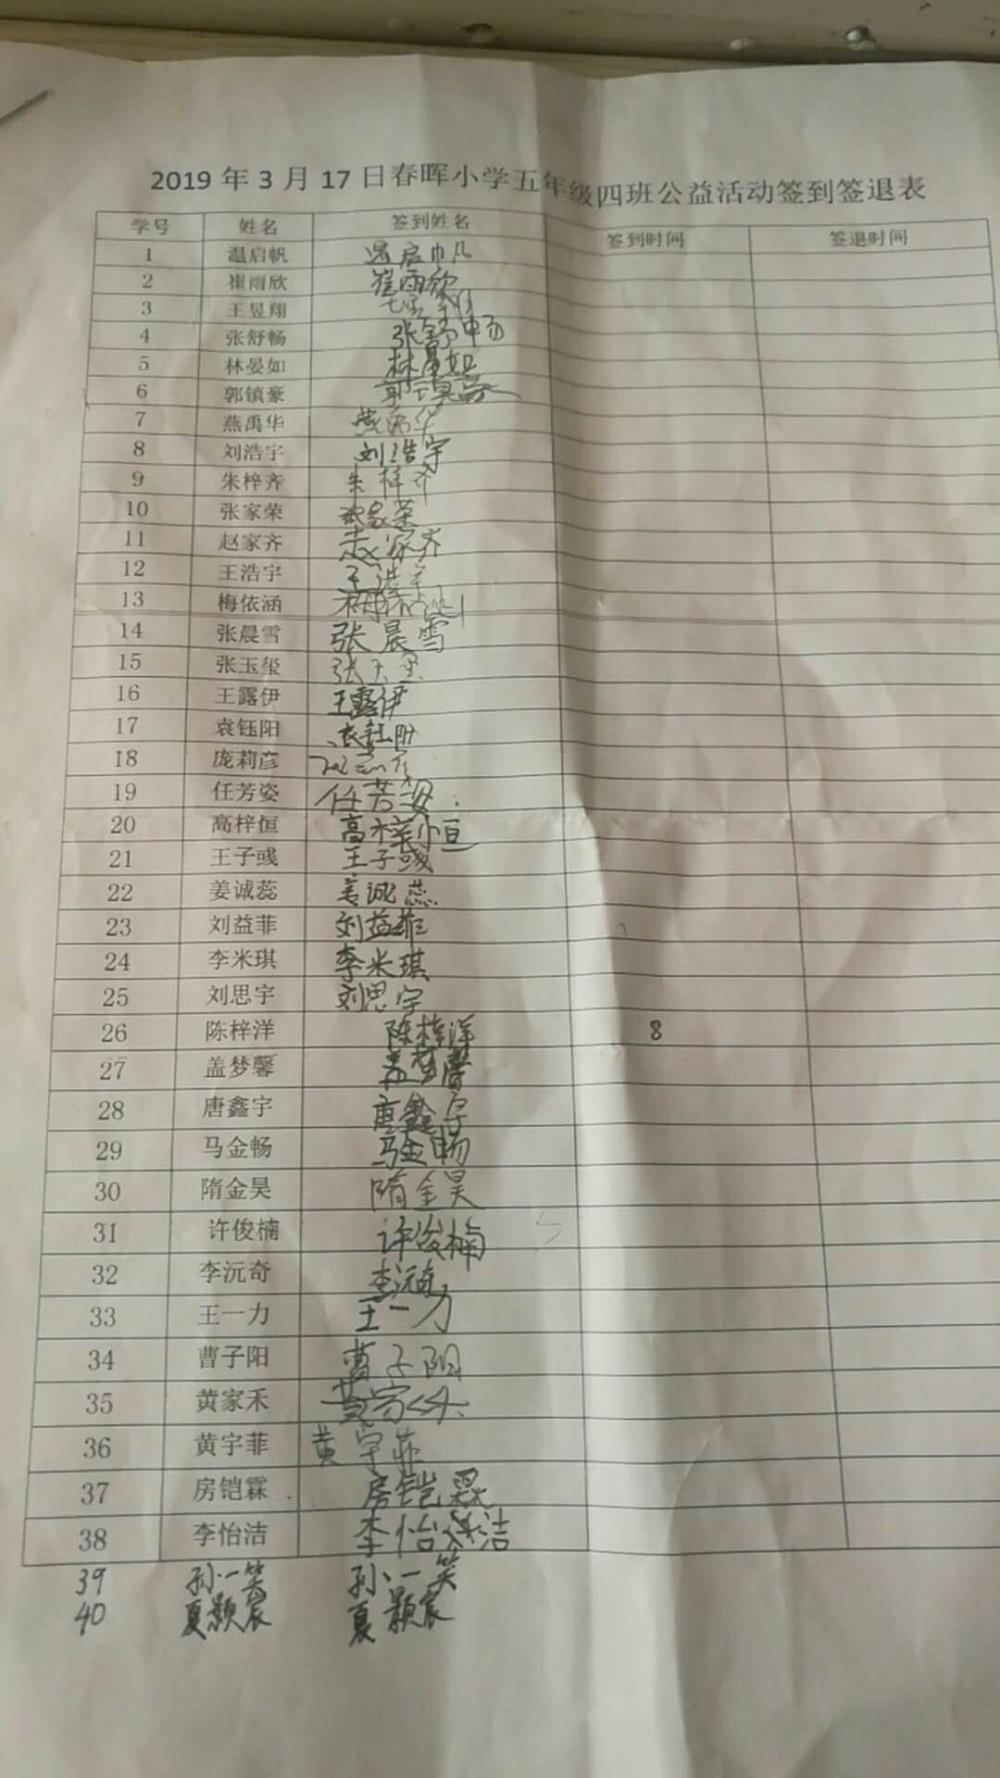 2019 年 3 月 17 日春晖小学五年级四班公益活动签到签退表
学号 姓名 签到姓名 签到时间 签退时间
1 温启帆 温启帆
2 崔雨欣 崔雨欣
3 王昱翔
4 张舒畅 张舒畅
5 林晏如 林晏如
6 郭镇豪 郭镇豪
7 燕禹华 燕禹华
8 刘浩宇 刘浩宇
9 朱梓齐 朱梓齐
10 张家荣 张家荣
11 赵家齐 赵家齐
12 王浩宇 王浩宇
13 梅依涵 梅依涵
14 张晨雪 张晨雪
15 张玉玺 张玉玺
16 王露伊 王露伊
17 袁钰阳 袁钰阳
18 庞莉彦
19 任芳姿 任芳姿
20 高梓恒 高梓恒
21 王子彧 王子彧
22 姜诚蕊 姜诚蕊
23 刘益菲 刘益菲
24 李米琪 李米琪
25 刘思宇 刘思宇
26 陈梓洋 陈梓洋 8
27 盖梦馨 盖梦馨
28 唐鑫宇 唐鑫宇
29 马金畅 马金畅
30 隋金昊 隋金昊
31 许俊楠 许俊楠
32 李沅奇 李沅奇
33 王一力 王一力
34 曹子阳 曹子阳
35 黄家禾 黄家禾
36 黄宇菲 黄宇菲
37 房铠霖 房铠
38 李怡洁 李怡洁
39 孙一笑 孙一笑
40 夏颢宸 夏颢宸